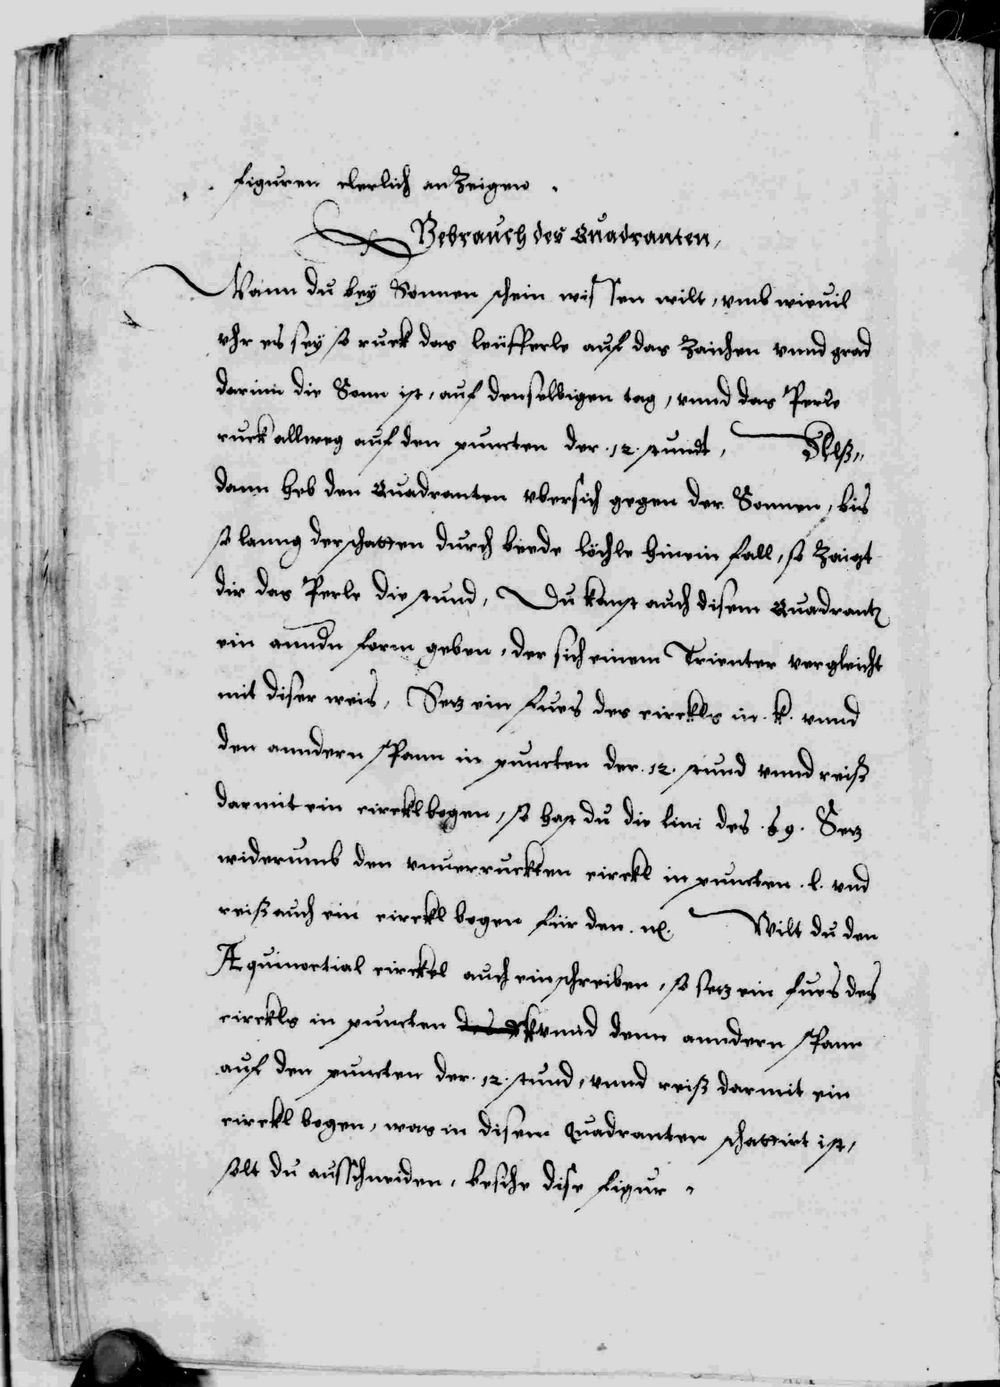 figuren clerlich anzeigen .
Gebrauch des Quadranten,
Wann du bey Sonnen schein wissen wilt, vmb wieuil
vhr es sey so ruck das leüfferle auf das Zaichen vnnd grad
darinn die Sonn ist, auf denselbigen tag, vnnd das Perle
ruck allweg auf den puncten der .12. stundt, Als,,
dann heb den Quadranten vbersich gegen der Sonnen, bis
so lanng der schatten durch beede löchle hinein fall, so zaigt
dir das Perle die stund, Du kanst auch disem Quadrantz
ein anndn form geben, der sich einem Trienter vergleicht
mit diser weis, Setz ein fues des circkls in .k. vnnd
den anndern Spann in puncten der .12. stund vnnd reiß
darmit ein circklbogen, so hast du die lini des .♋. Setz
widerumb den vnuerruckten circkl in puncten .l. vnd
reiß auch ein circkl bogen für den . Wilt du den
Æquinoctial circkel auch einschreiben, so setz ein fues des
circkls in puncten vnnd denn anndern Spann
auf den puncten der .12. stund, vnnd reiß darmit ein
circkl bogen, was in disem Quadranten schattirt ist,
solt du ausschneiden, besihe dise figur .